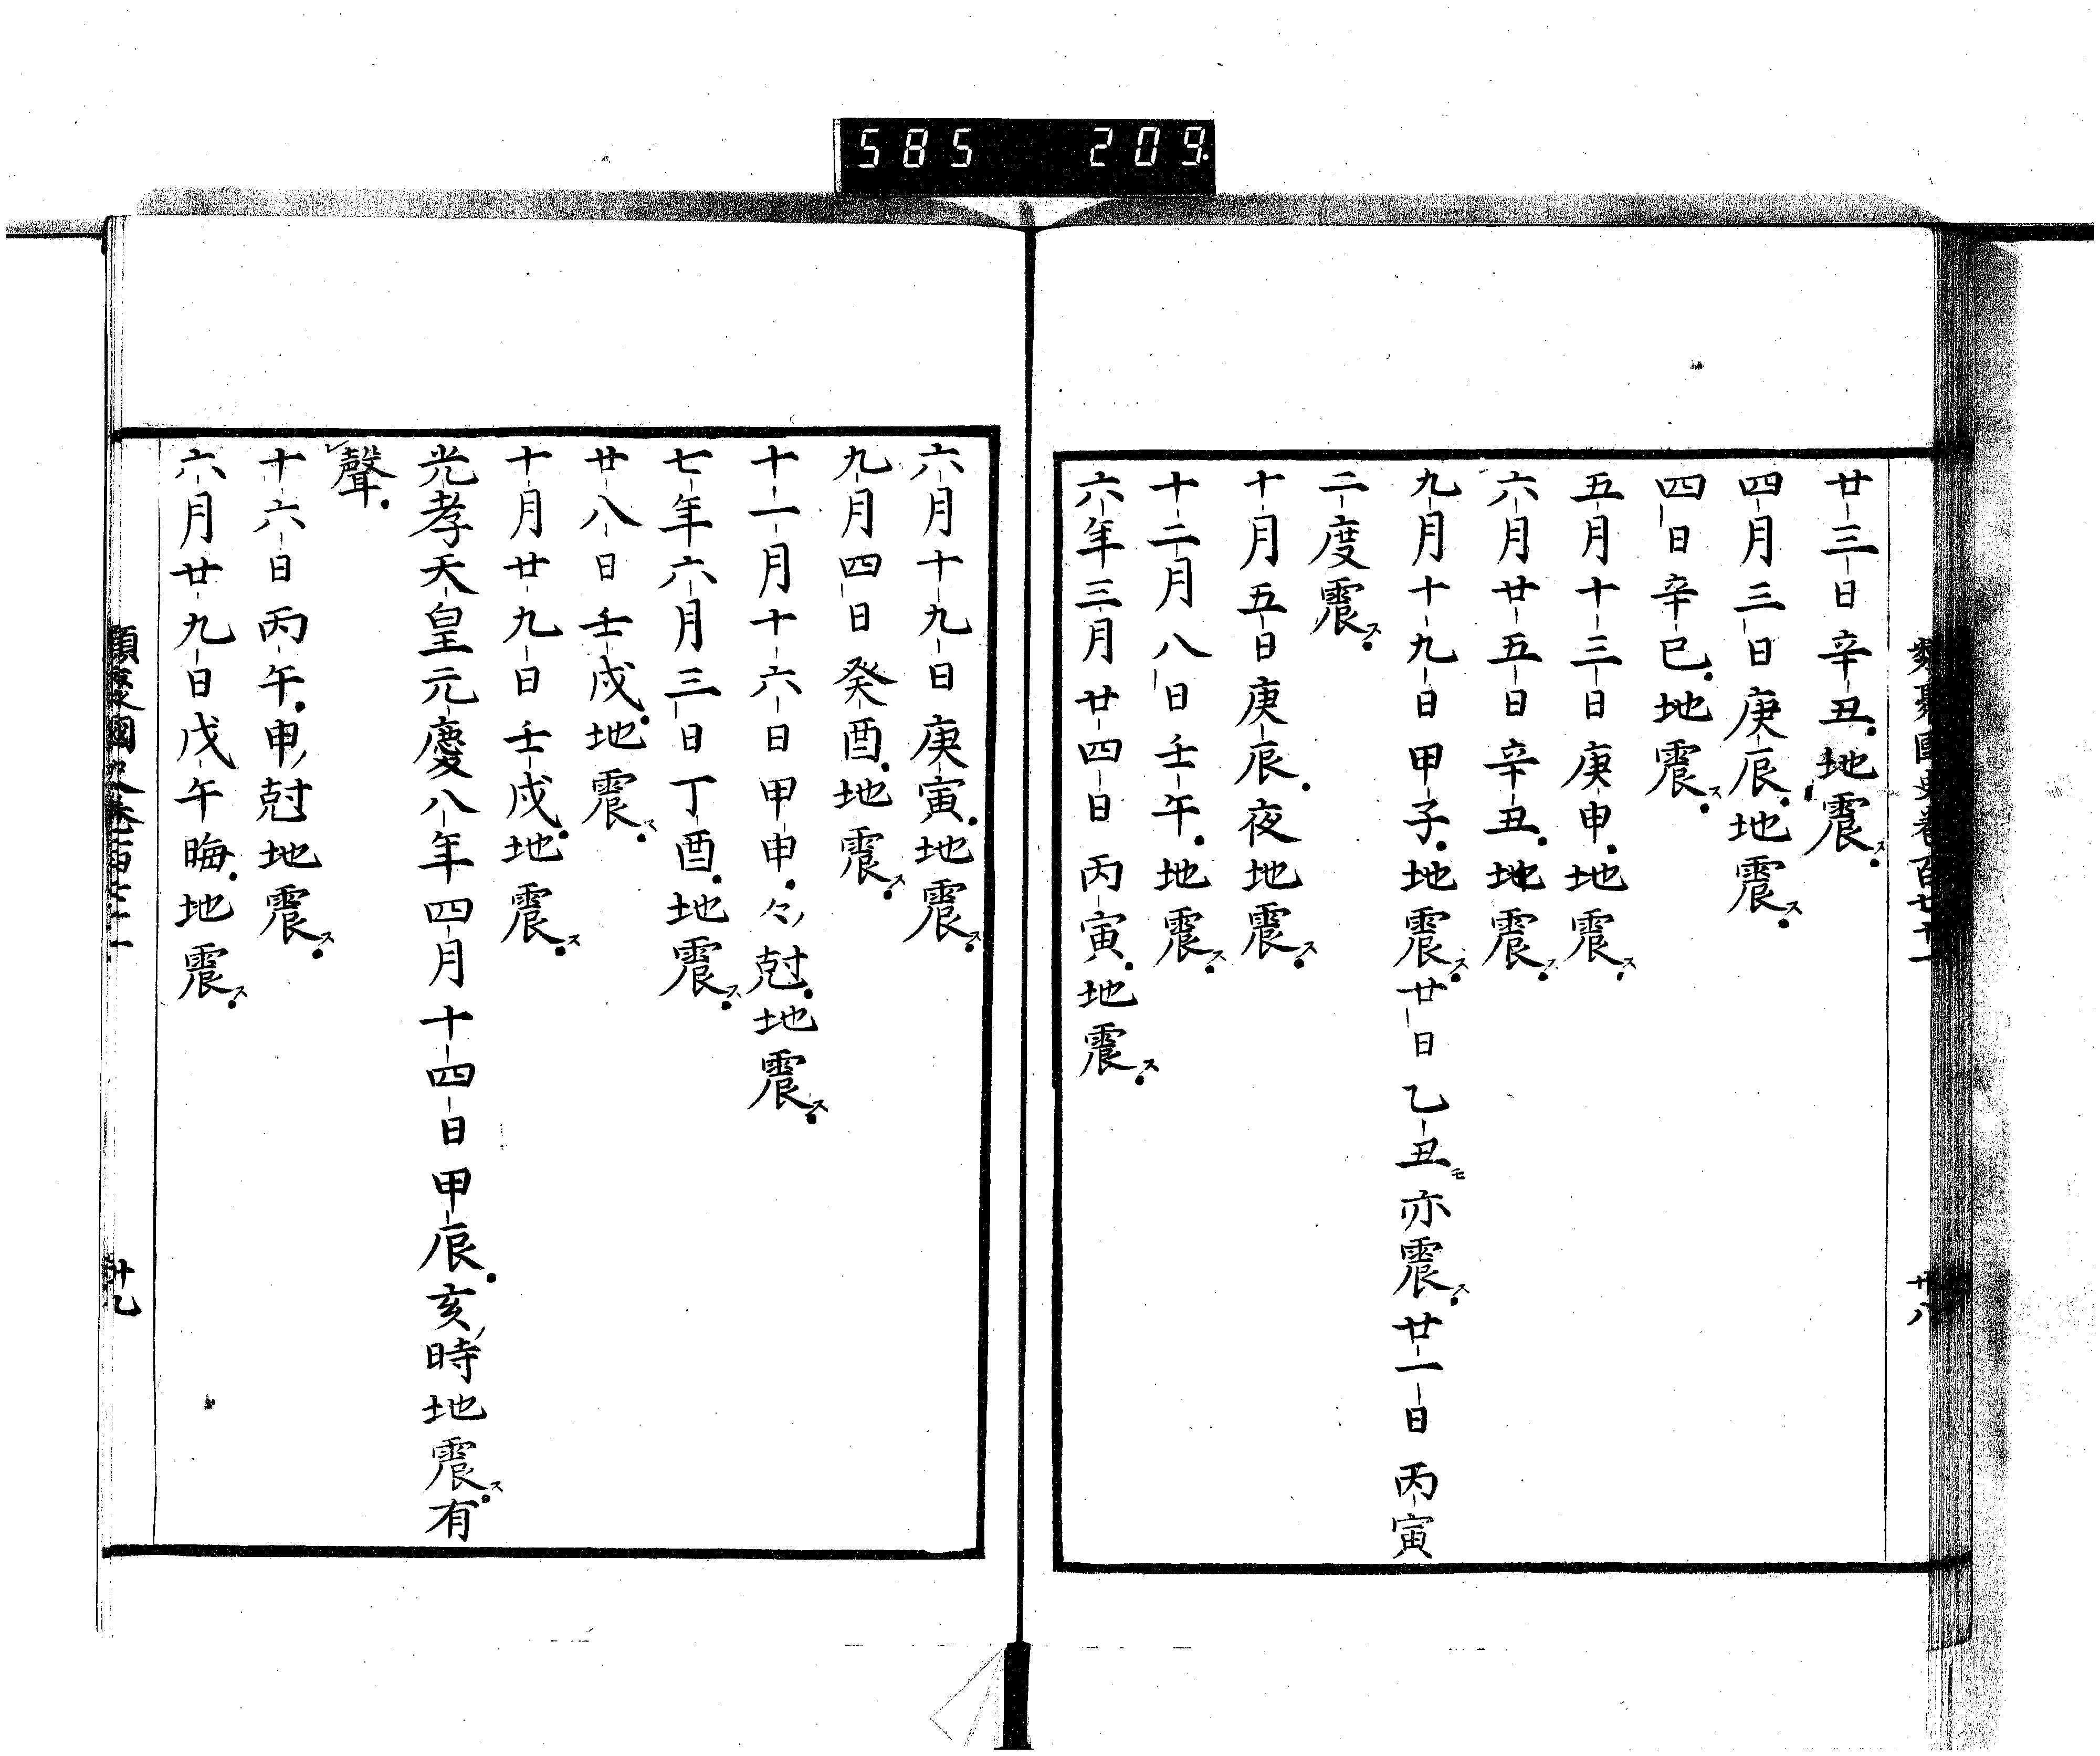 585 209
廿三日辛丑地震
四月三日庚辰地震
四日辛巳地震
五月十三日庚申地震
六月廿五日辛丑地震
九月十九日甲子地震廿日乙丑亦震廿一日丙寅
二度震
十月五日庚辰夜地震
十二月八日壬午地震
六年三月廿四日丙寅地震
六月十九日庚寅地震
九月四日癸酉地震
十一月十六日甲申々尅地震
七年六月三日丁酉地震
廿八日壬戌地震
十月廿九日壬戌地震
光孝天皇元慶八年四月十四日甲辰亥時地震有
聲
十六日丙午申尅地震
六月廿九日戊午晦地震